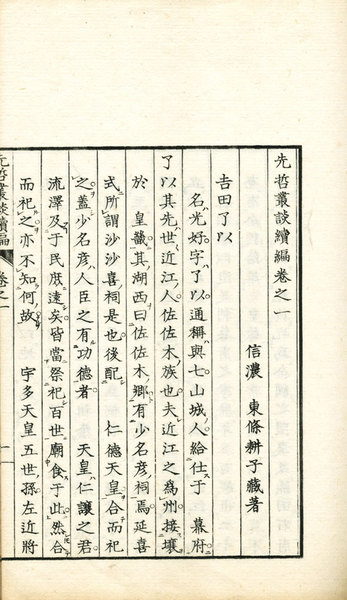 先哲叢談續編卷之一
信濃 東條耕子藏著
吉田了以
名光好字了以通稱與七山城人給仕于 幕府
了以其先世近江人佐佐木族也夫近江之爲州接壤
於 皇畿其湖西曰佐佐木鄉有少名彥祠焉延喜
式所謂沙沙喜祠是也後配 仁德天皇合而祀
之蓋少名彥人臣之有功德者 天皇仁讓之君
流澤及于民庶遠矣皆當祭祀百世廟食于此然合
而祀之亦不知何故 宇多天皇五世孫左近將
先哲叢談續編 卷之一 一